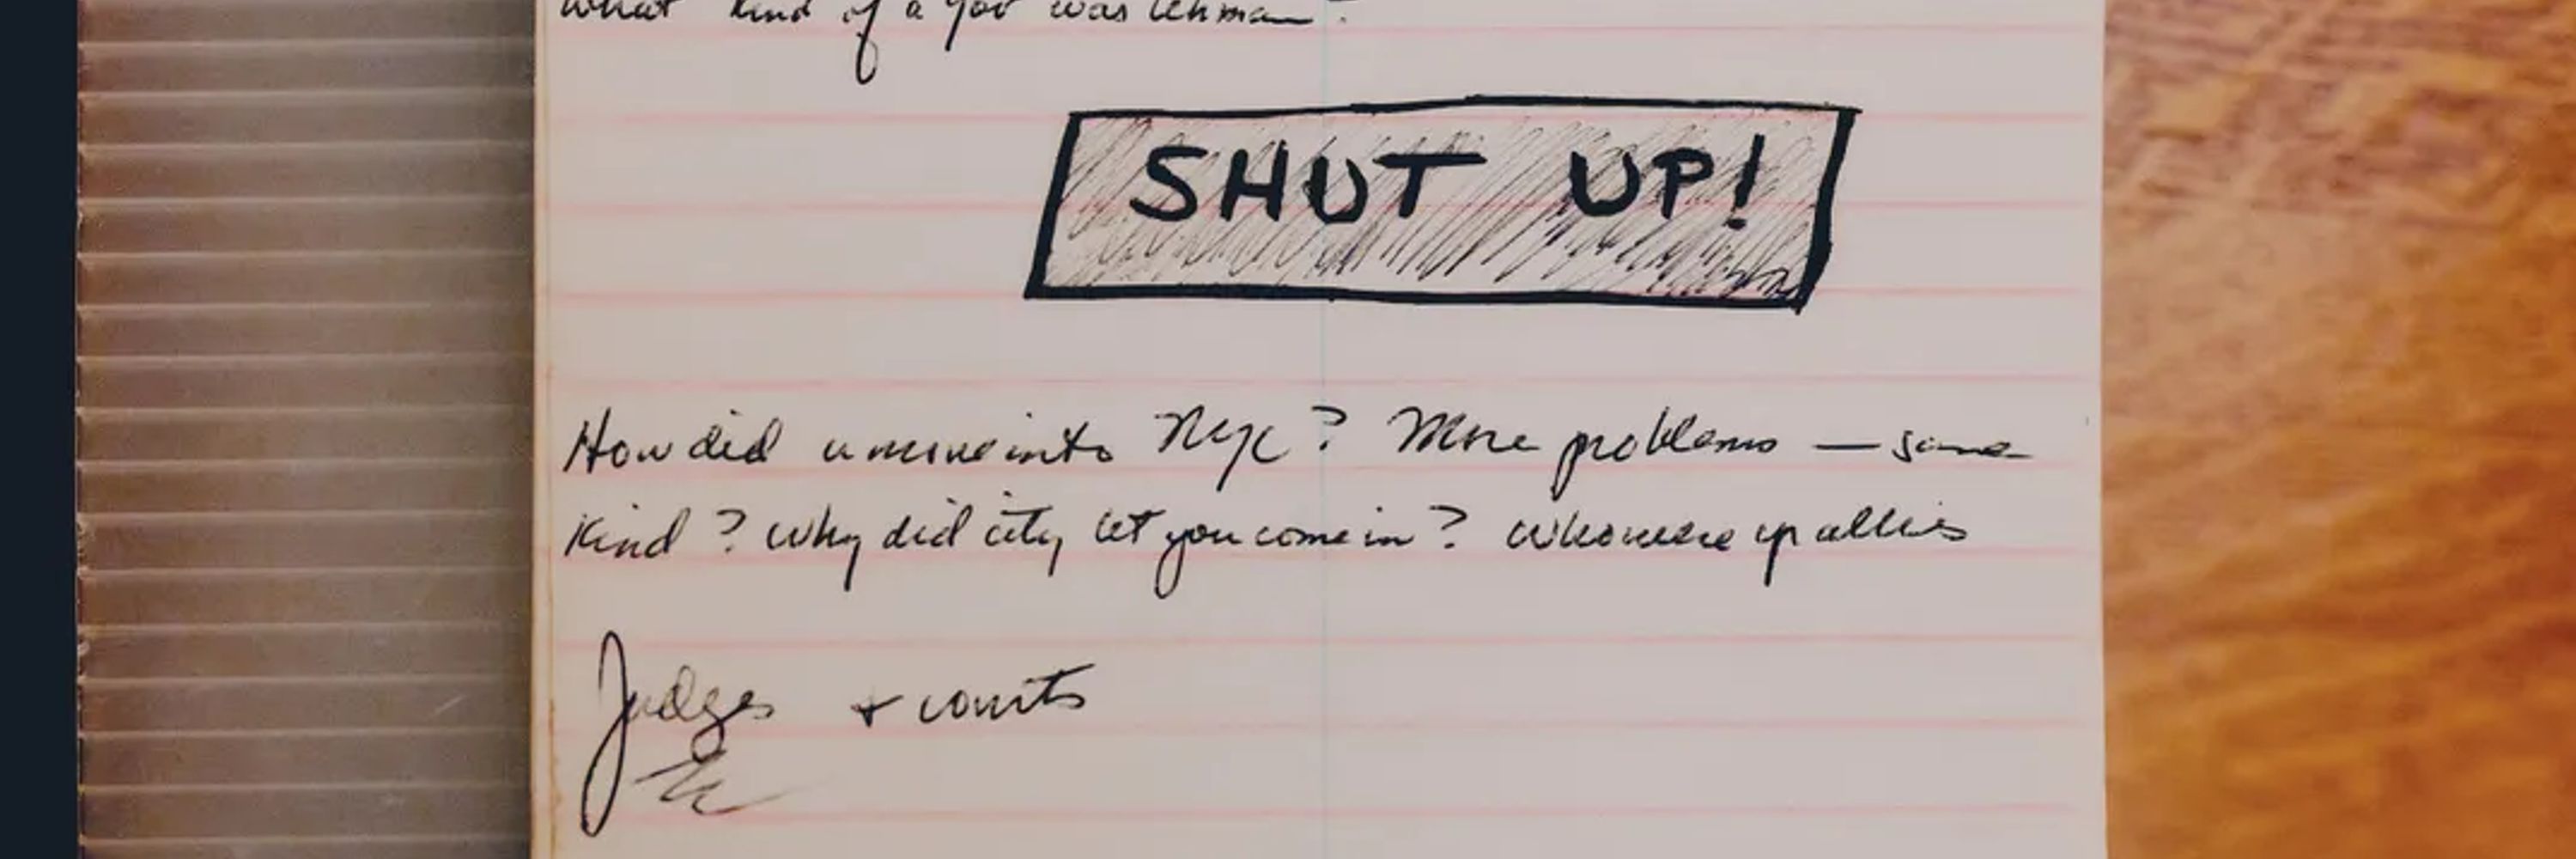 What kind of a gov was Lehman?
SHUT UP!
How did u move into NYC? More problems — same
kind? Why did city let you come in? Who were yr allies
Judges + courts